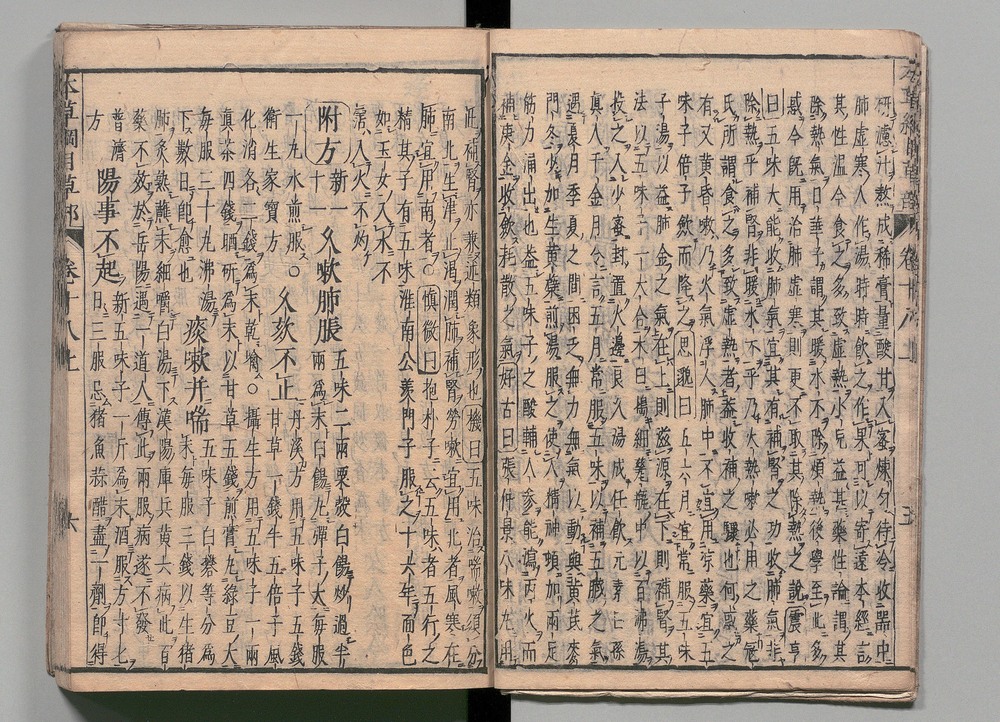 研濾汁熬成稀膏量酸甘入蜜煉勻待冷收器中
肺虛寒人作湯時時飲之作果可以寄遠本經言
其性溫今食之多致虛熱小兒益甚藥性論謂其
除熱氣日華子謂其暖水臟除煩熱後學至此多
惑今旣用治肺虛寒則更不取其除熱之說震亨
曰五味大能收肺氣宜其有補腎之功收肺氣非
除熱乎補腎非暖水臟乎乃火熱嗽必用之藥寇
氏所謂食之多致虛熱者蓋收補之驟也何惑之
有又黃昏嗽乃火氣浮入肺中不宜用涼藥宜五
味子五倍子斂而降之思邈曰五六月宜常服五味
子湯以益肺金之氣在上則滋源在下則補腎其
法以五味子一大合木臼搗細瓷瓶中以百沸湯
投之入少蜜封置火邊良久湯成任飲元素曰孫
真人千金月令言五月常服五味以補五臟之氣
遇夏月季夏之間困乏無力無氣以動與黃芪麥
門冬少加生黃蘗煎湯服之使人精神頓加兩足
筋力涌出也蓋五味子之酸輔人參能瀉丙火而
補庚金收斂耗散之氣好古曰張仲景八味丸用
此補腎亦兼述類象形也機曰五味治喘嗽須分
南北生津止渴潤肺補腎勞嗽宜用北者風寒在
肺宜用南者○慎微曰抱朴子云五味者五行之
精其子有五味淮南公羨門子服之十六年面色
如玉女入水不
霑入火不灼
附方新一十一 久嗽肺脹五味二兩粟殼白餳炒過半兩爲末白餳丸彈子大每服
一丸水煎服○丹溪方用五味子五錢
衛生家寶方 久欬不止甘草一錢半五倍子風
化消各二錢爲末乾噙○攝生方用五味子一兩
眞茶四錢晒研爲末以甘草五錢煎膏丸綠豆大
每服三十丸沸湯
下數日卽愈也 痰嗽并喘五味子白礬等分爲末每服三錢以生猪
肺炙熟蘸末細嚼白湯下漢陽庫兵黃六病此百
藥不效於岳陽遇一道人傳此兩服病遂不發
普濟
方 陽事不起新五味子一斤爲末酒服方寸匕日三服忌猪魚蒜醋盡一劑卽得
本草綱目草部 卷十八上 六